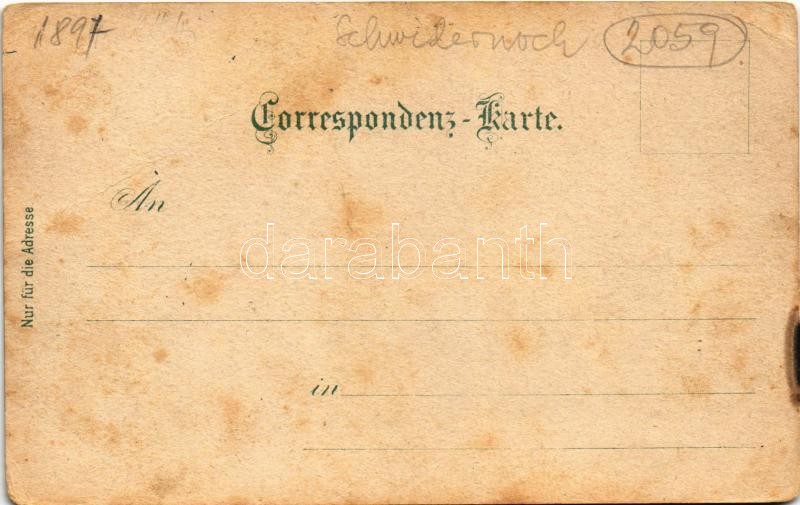 1897 Schwidernoch 2059
Correspondenz-Karte.
An
Nur für die Adresse
darabanth
in